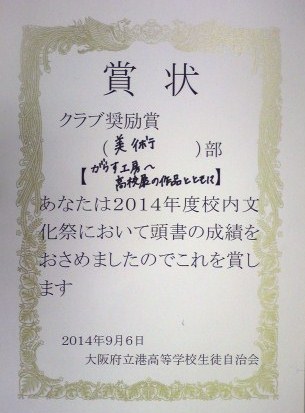 賞状
クラブ奨励賞
(美術)部
【がらす工房へ
高校展の作品とともに】
あなたは2014年度校内文
化祭において頭書の成績を
おさめましたのでこれを賞し
ます
2014年9月6日
大阪府立港高等学校生徒自治会